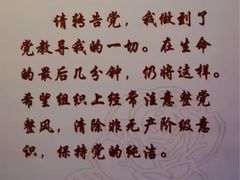 请转告党，我做到了
党教导我的一切。在生命
的最后几分钟，仍将这样。
希望组织上经常注意整党
整风，清除非无产阶级意
识，保持党的纯洁。